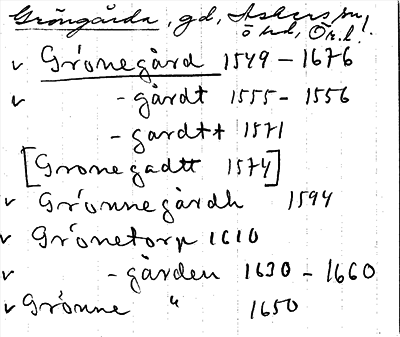 Gröngårda, gd, Askers sn,
ö hd, Ör.l.
v Grönegård 1549 - 1676
v - gårdt 1555 - 1556
- gardtt 1571
[Gronegadtt 1574]
v Grönnegårdh 1594
v Grönetorp 1610
v - gården 1630 - 1660
v Grönne " 1650